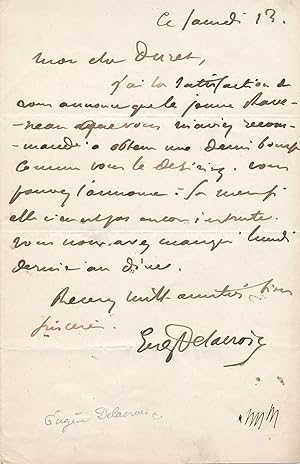 Ce samedi 13.
Mon cher Duret,
j'ai la satisfaction de
vous annoncer que le jeune
que vous m'aviez recom-
mandé a obtenu une demi bourse
comme vous le désiriez. vous
pouvez l'annoncer à sa mère si
elle n'en est pas encore instruite.
vous nous avez manqué lundi
dernier au dîner.
Recevez mille amitiés bien
sincères.
Eug Delacroix
Eugène Delacroix